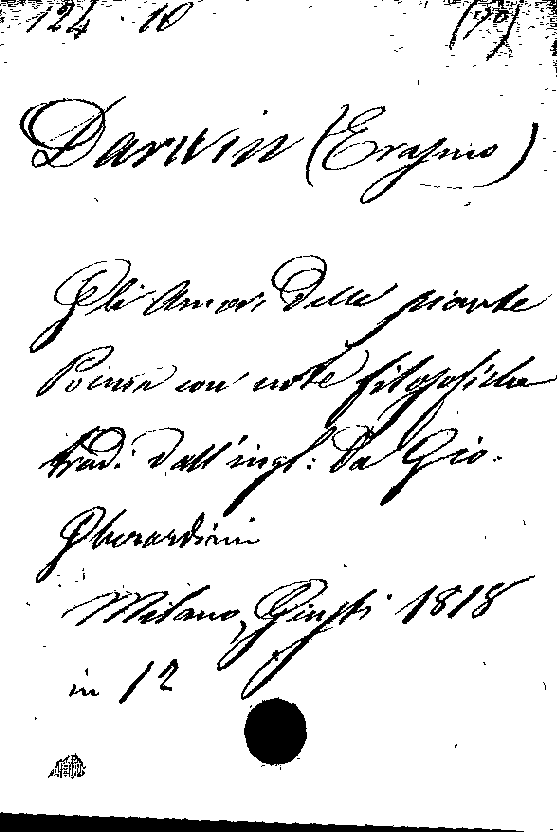 124 · 10 (70)
Darwin (Erasmo)
Gli Amori delle piante
Poema con note filosofiche
trad: dall'ingl: da Gio.
Gherardini
Milano, Giusti 1818
in 12